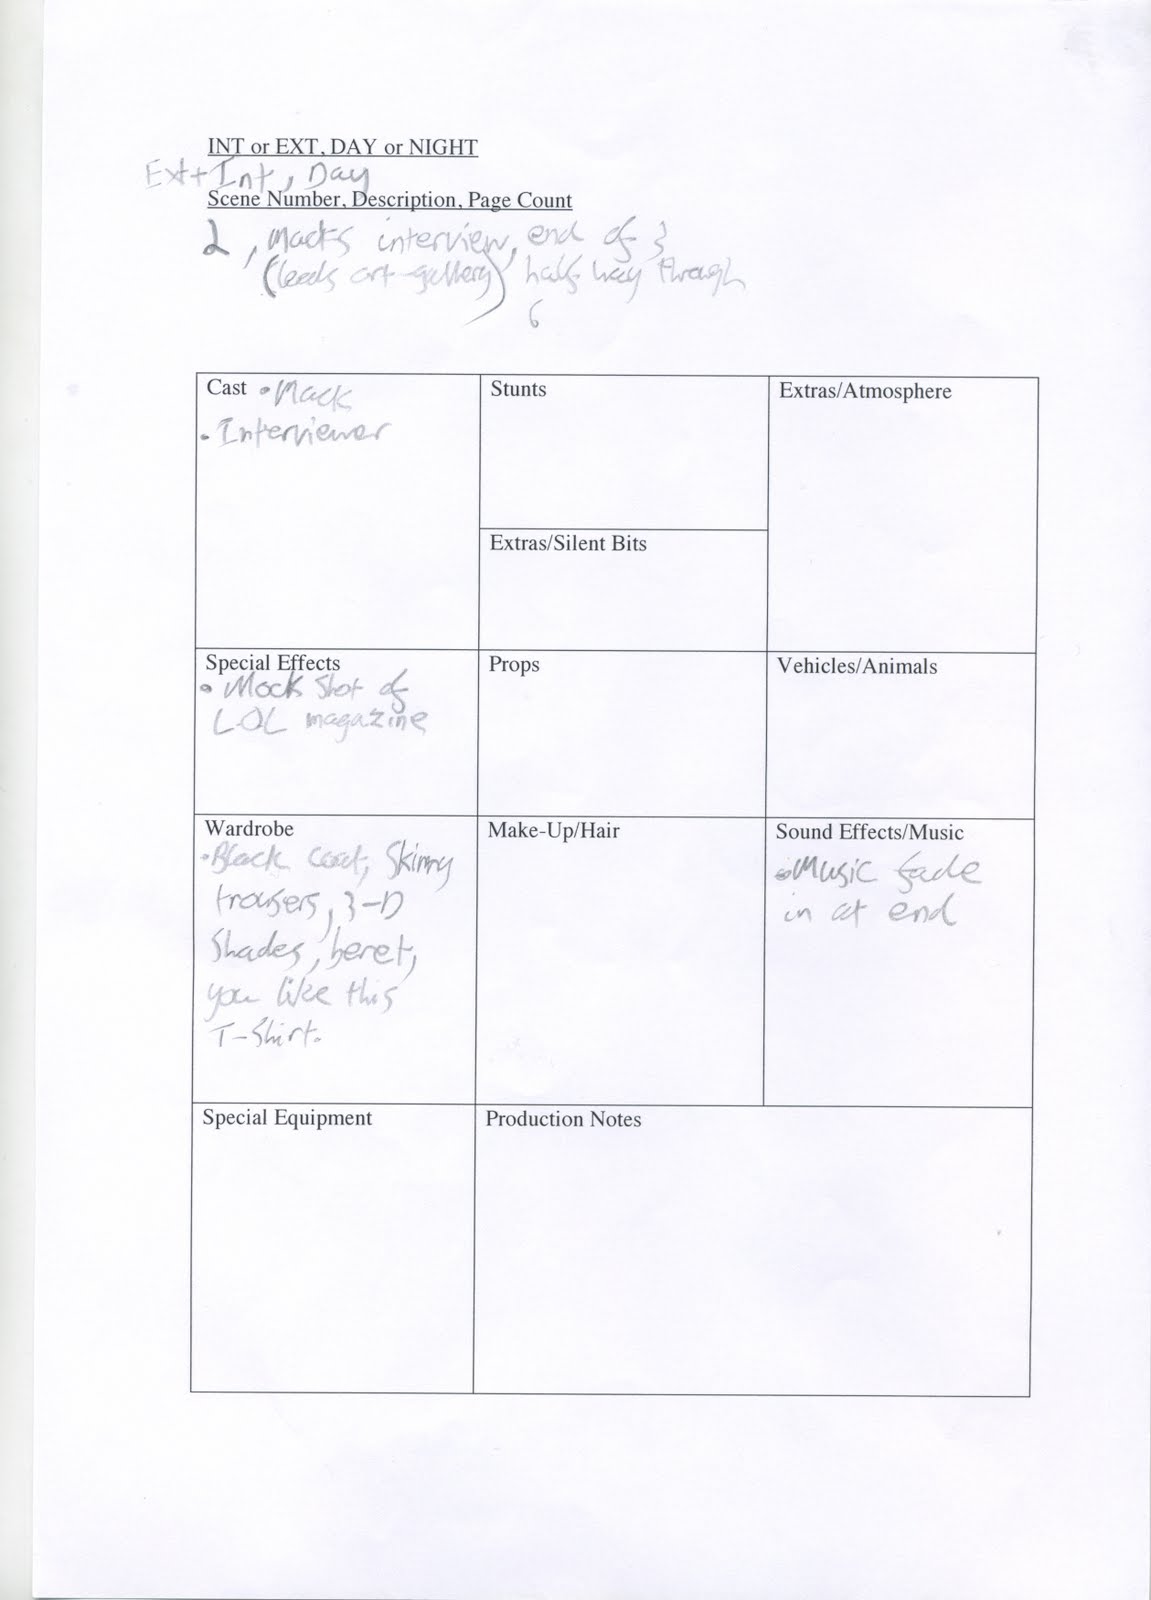 INT or EXT, DAY or NIGHT
Ext+Int, Day
Scene Number, Description, Page Count
2, Macks interview, end of 3
(leeds art-gallery) half way through
6
Cast • Mack
• Interviewer
Stunts
Extras/Atmosphere
Extras/Silent Bits
Special Effects
• Mock Shot of
LOL magazine
Props
Vehicles/Animals
Wardrobe
• Black coat, Skinny
trousers, 3-D
Shades, beret,
you like this
T-Shirt.
Make-Up/Hair
Sound Effects/Music
• Music fade
in at end
Special Equipment
Production Notes